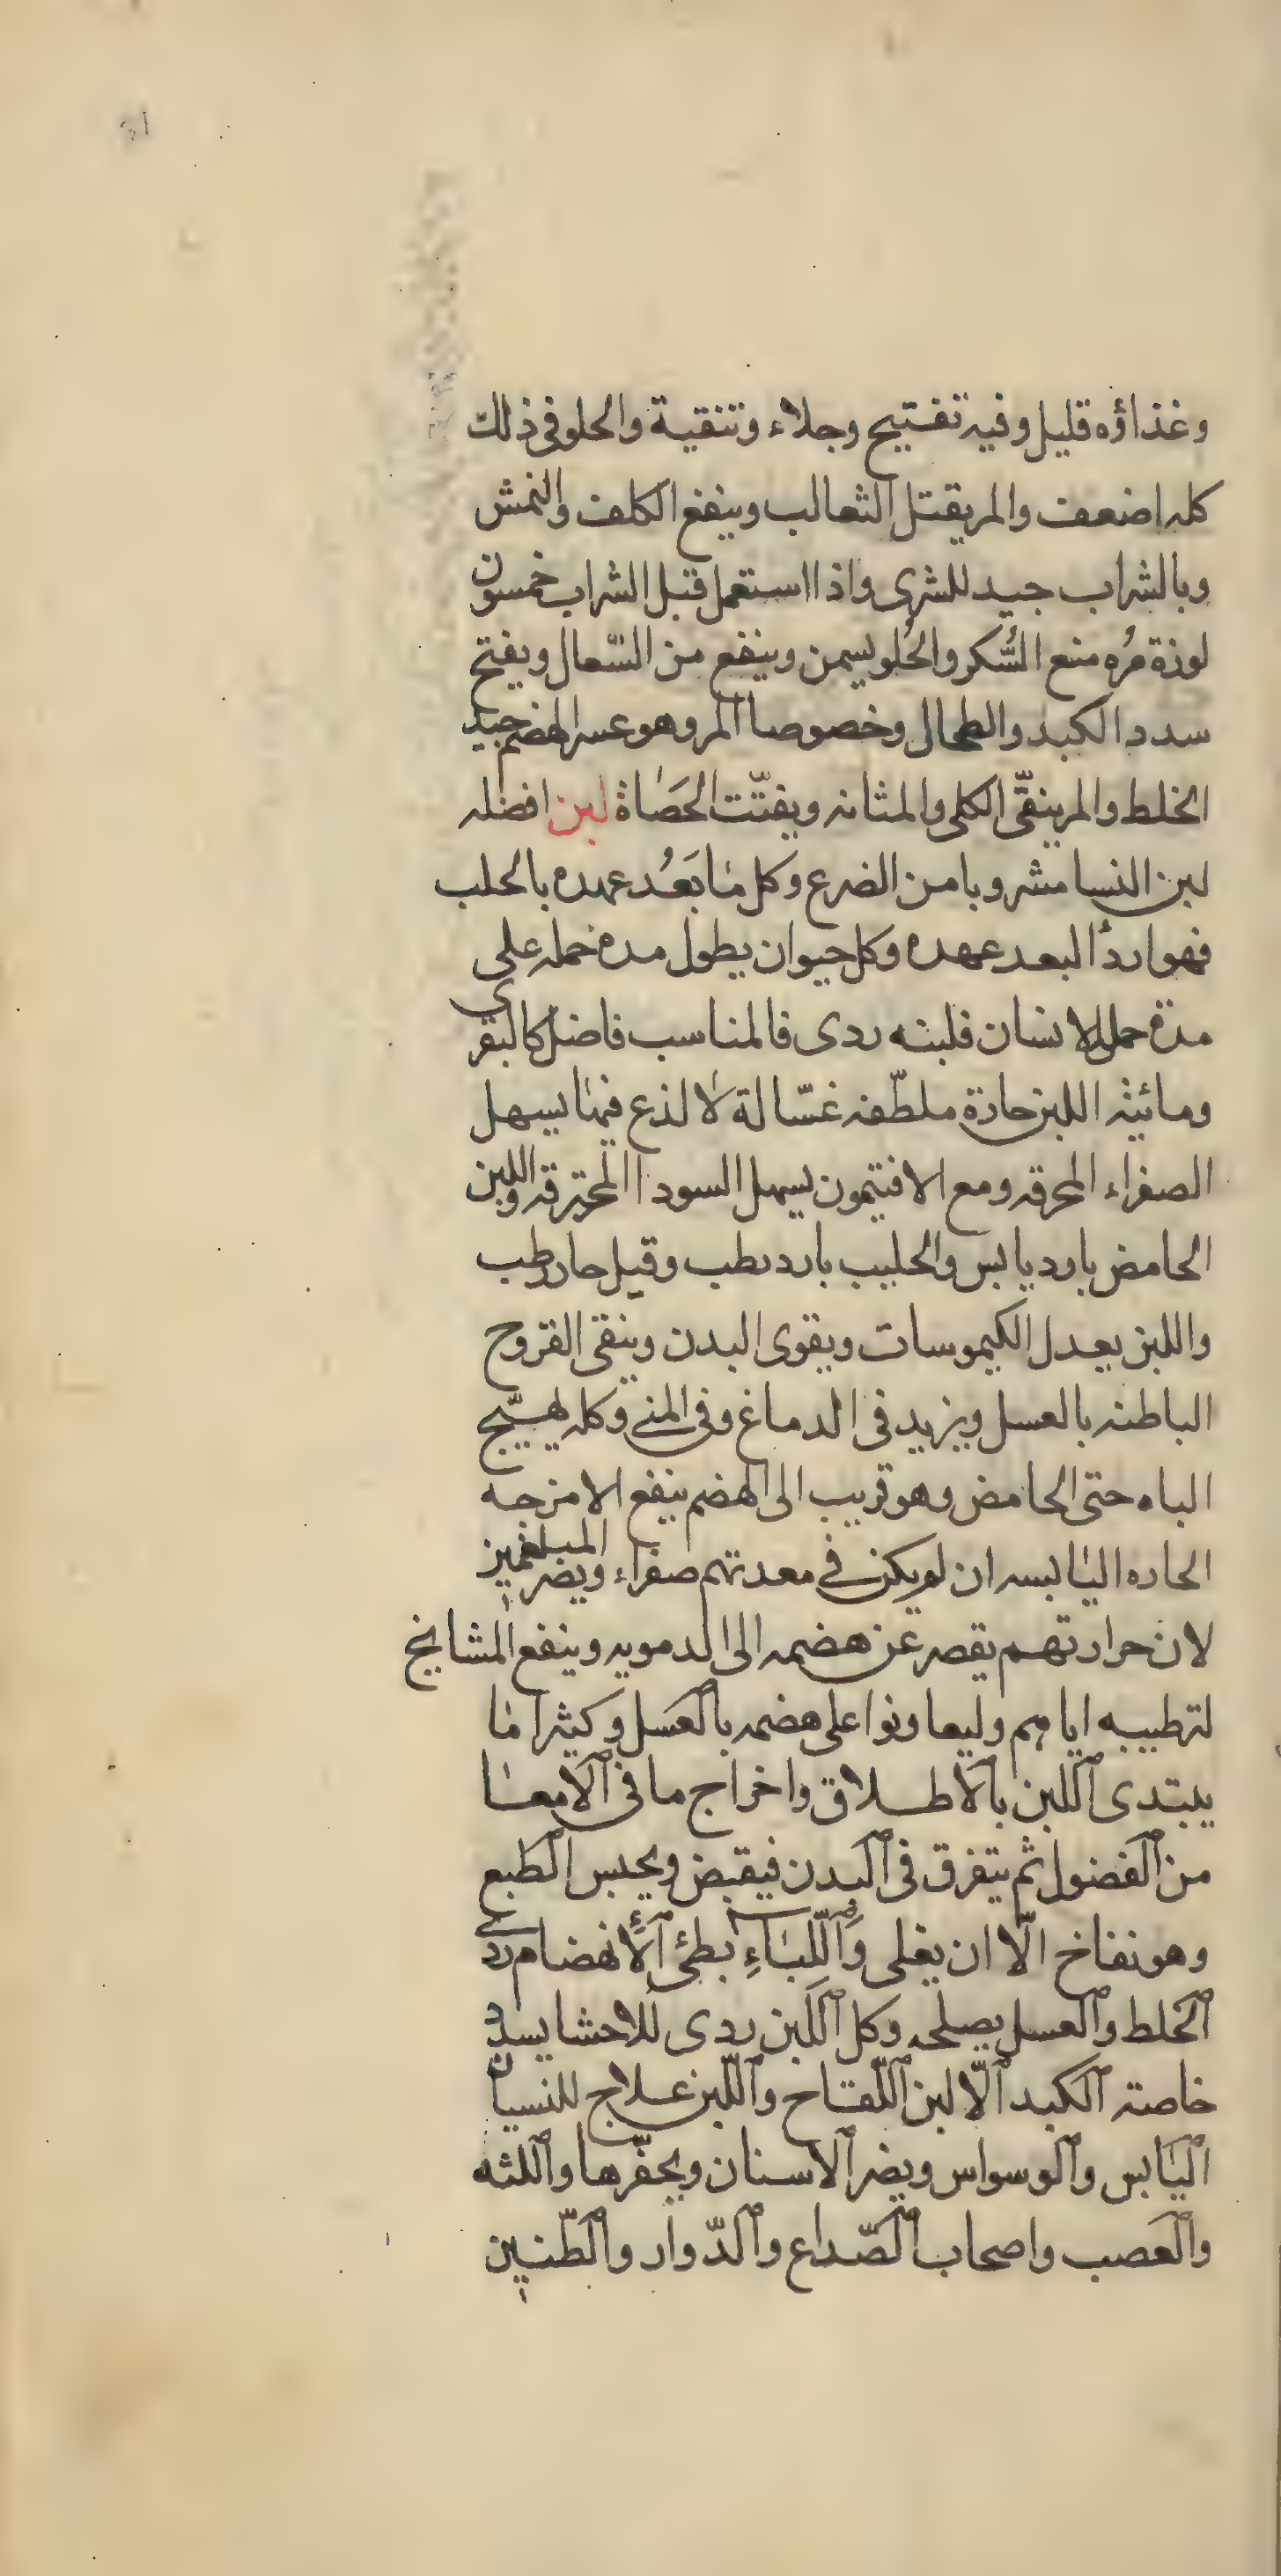 وغذاؤه قليل وفيه تفتيح وجلاء وتنقية والحلو في ذلك
كله اضعف والمر يقتل الثعالب وينفع الكلف والنمش
وبالشراب جيد للشرى واذا استعمل قبل الشراب خمسون
لوزة مُره منع السُّكر والحُلو يسمن وينفع من السّعال ويفتح
سدد الكبد والطحال وخصوصا المر وهو عسر الهضم جيد
الخلط والمر ينقّى الكلى والمثانه ويفتّت الحَصَاة لبن افضله
لبن النسا مشروبا من الضرع وكل ما بَعُد عهده بالحلب
فهو اردأ لبعد عهده وكل حيوان يطول مدة حمله على
مدة حمل الانسان فلبنه ردى فالمناسب فاضل كالبقرى
ومائيه اللبن حادة ملطّفه غسّالة لا لذع فيها يسهل
الصفراء المحرقه ومع الافتيمون يسهل السودا المحترقه واللبن
الحامض بارد يابس والحليب بارد رطب وقيل حار رطب
واللبن يعدل الكيموسات ويقوى البدن وينقى القروح
الباطنه بالعسل ويزيد في الدماغ وفى المنى وكله يهيّج
الباه حتى الحامض وهو قريب الى الهضم ينفع الامزجه
الحاره اليابسه ان لم يكن في معدتهم صفراء ويضر المبلغمين
لان حرارتهم يقصر عن هضمه الى الدمويه وينفع المشايخ
لترطيبه اياهم وليعاونوا على هضمه بالعَسل وكثيرا ما
يبتدى اللبن بالاطلاق واخراج ما فى الامعا
من الفضول ثم يتفرق فى البدن فيقبض ويحبس الطبع
وهو نفاخ الّا ان يغلى وَاللّباءِ بطئ الأنهضام ردى
الخلط والعسل يصلحه وكل اللَبن ردى للاحشا يسدد
خاصته الكبد الّا لبن اللّقاح واللّبن علاج للنسيان
اليَابس والوسواس ويضر الاسنان ويحفّرها واللثه
والعَصب واصحاب الصّداع والدّوار والطّنين